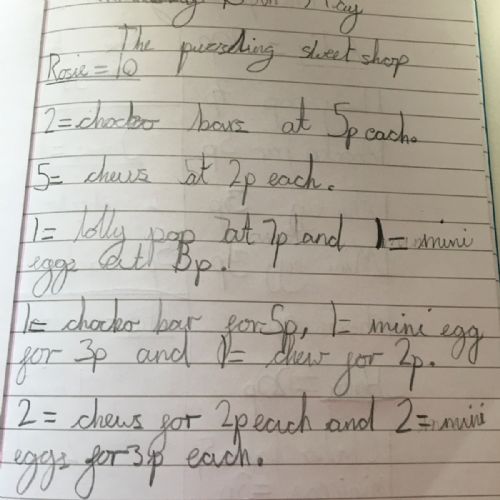 The puzseling sweet shop
Rosie = 10
2= chocko bars at 5p each.
5= chews at 2p each.
1= lolly pop at 7p and 1= mini
eggs at 3p.
1= chocko bar for 5p, 1= mini egg
for 3p and 1= chew for 2p.
2= chews for 2p each and 2= mini
eggs for 3p each.